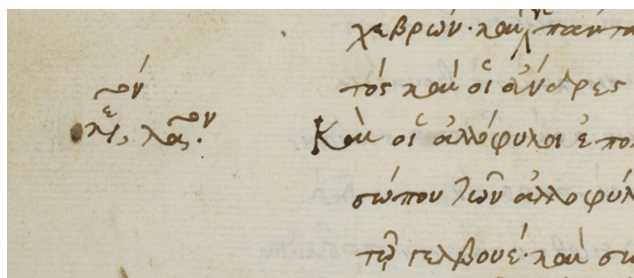 χεβρών· καὶ πάντα
τός καὶ οἱ ἄνδρες
Καὶ οἱ ἀλλόφυλοι ἐπολ
σώπου τῶν ἀλλοφύλ
τῷ γελβουέ· καὶ συ